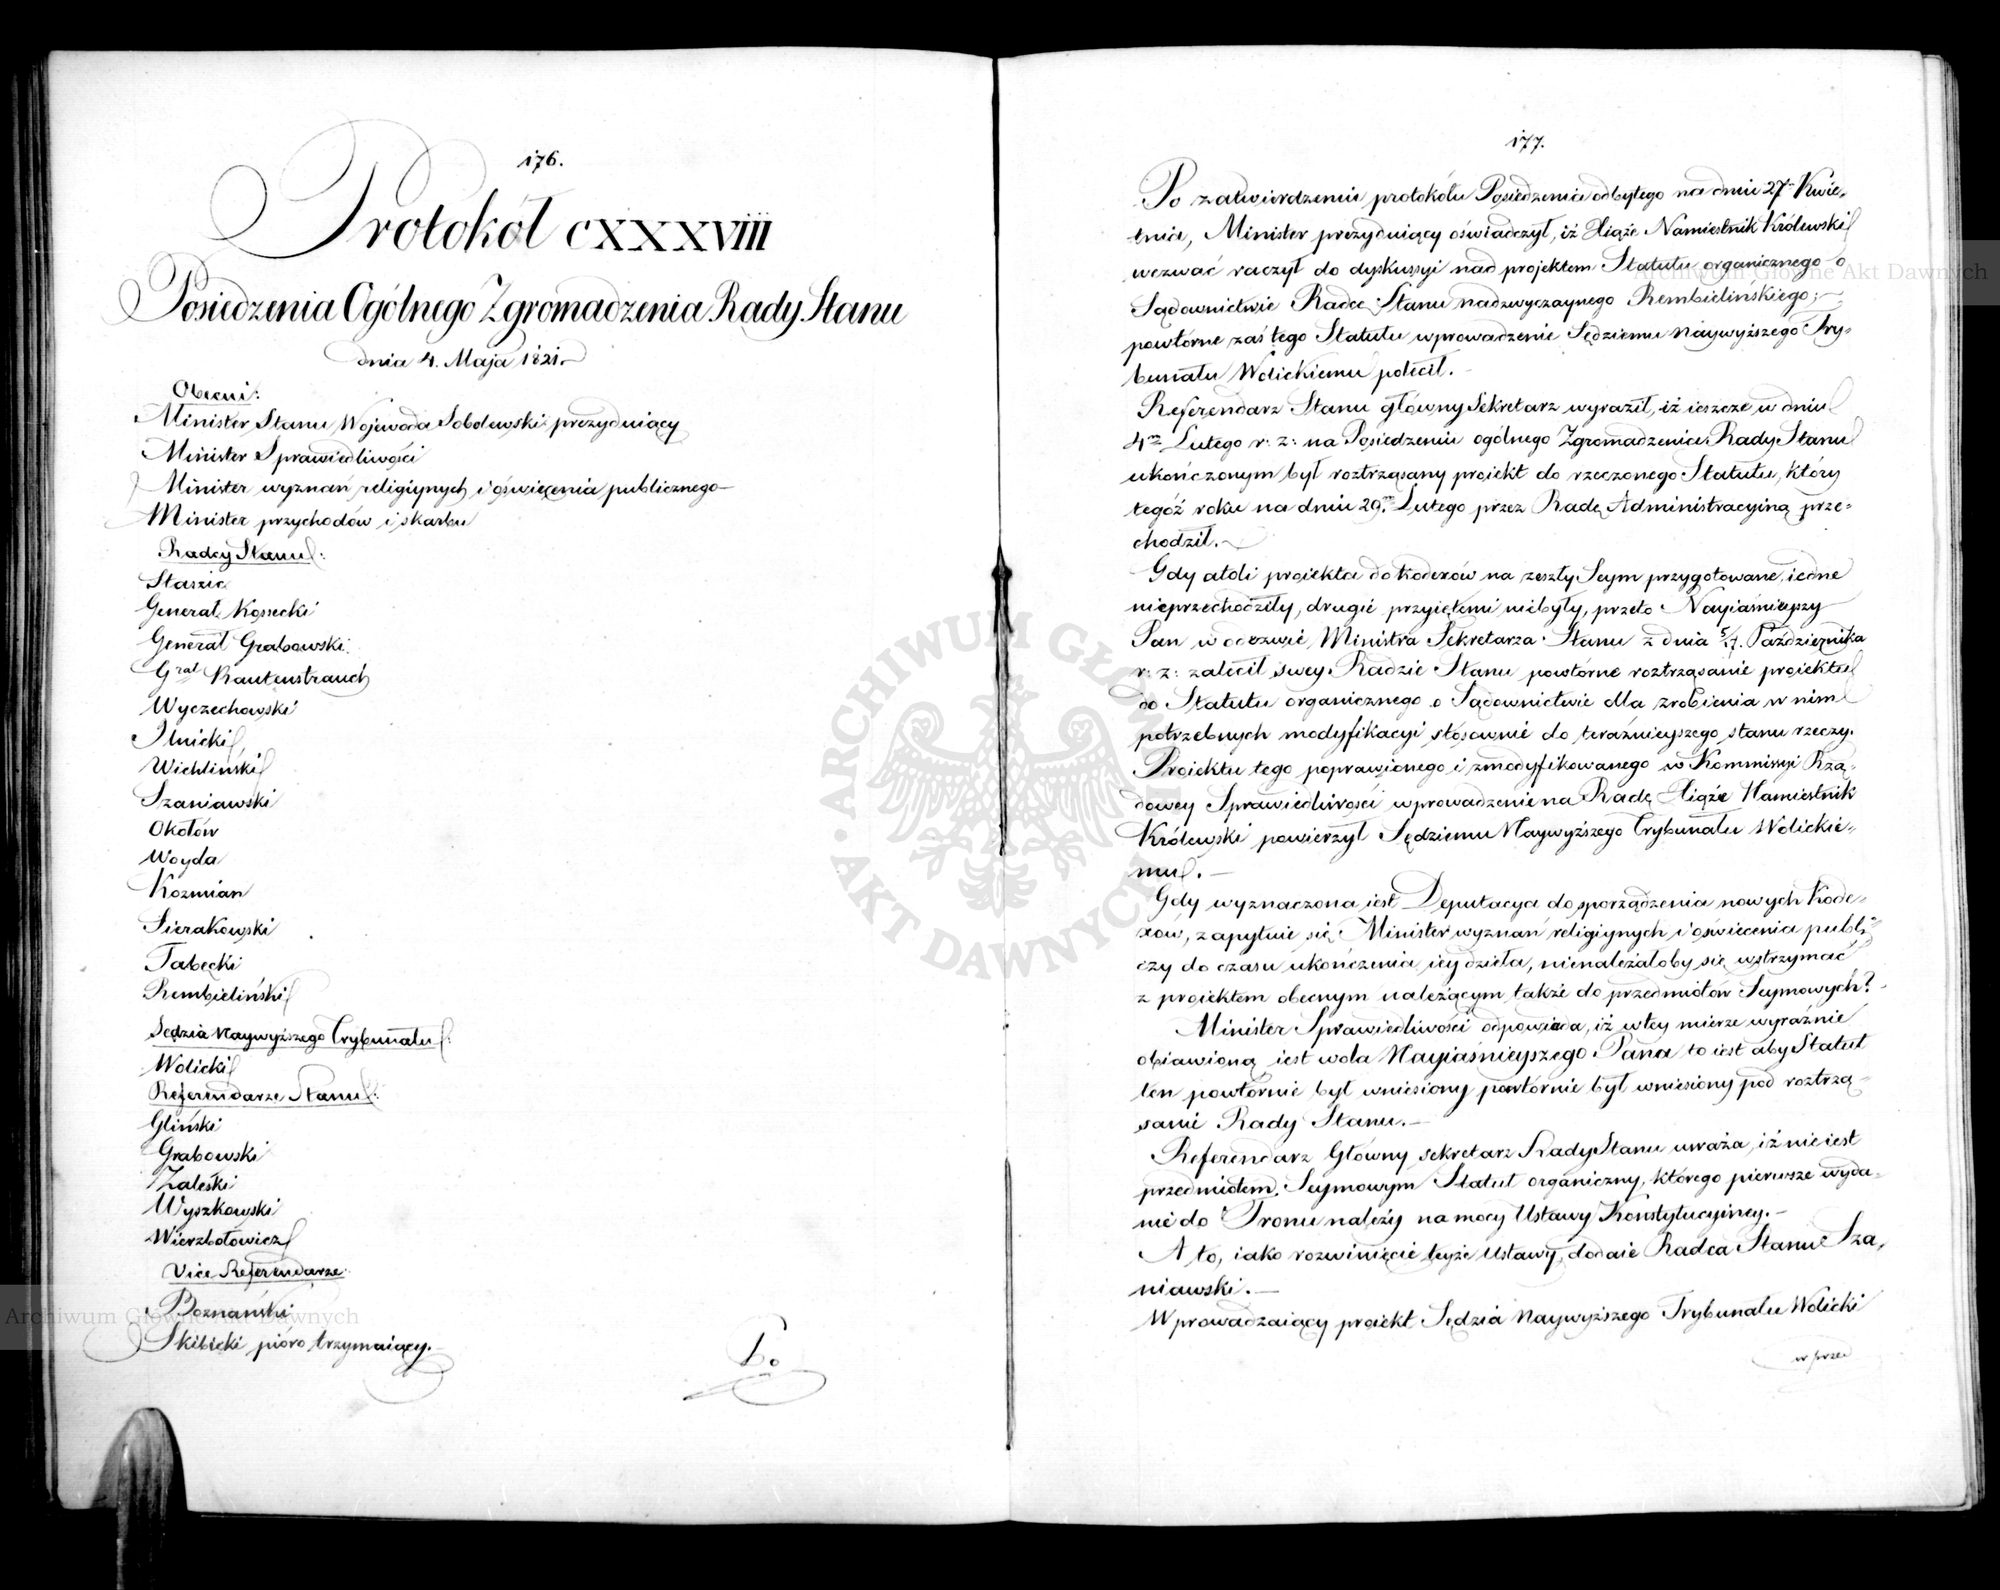 176.
Protokół CXXXVIII
Posiedzenia Ogólnego Zgromadzenia Rady Stanu
dnia 4. Maja 1821.
Obecni:
Minister Stanu Wojewoda Sobolewski prezyduiący
Minister Sprawiedliwości
Minister wyznań religiynych i oświecenia publicznego
Minister przychodów i skarbu
Radcy Stanu:
Staszic
Generał Kossecki
Generał Grabowski
Grał Rautenstrauch
Wyczechowski
Ilnicki
Wichliński
Szaniawski
Okołów
Woyda
Koźmian
Sierakowski
Tabęcki
Rembieliński
Sędzia Naywyższego Trybunału:
Wolicki
Referendarze Stanu:
Gliński
Grabowski
Zaleski
Wyszkowski
Wierzbołowicz
Vice Referendarze
Poznański
Skibicki pióro trzymaiący.
Po
177.
Po zatwierdzeniu protokółu Posiedzenia odbytego na dniu 27m Kwie-
tnia, Minister prezyduiący oświadczył, iż Xiąże Namiestnik Królewski
wezwać raczył do dyskussyi nad projektem Statutu organicznego o
Sądownictwie Radcę Stanu nadzwyczaynego Rembielińskiego;
powtórne zaś tego Statutu wprowadzenie Sędziemu Naywyższego Try-
bunału Wolickiemu polecił.
Referendarz Stanu główny Sekretarz wyraził, iż ieszcze w dniu
4m Lutego r: z: na Posiedzeniu ogólnego Zgromadzenia Rady Stanu
ukończonym był roztrząsany proiekt do rzeczonego Statutu, który
tegoż roku na dniu 29m Lutego przez Radę Administracyiną prze-
chodził.
Gdy atoli proiekta do Kodexów na zeszły Seym przygotowane, iedne
nieprzechodziły, drugie przyiętemi niebyły, przeto Nayiaśnieyszy
Pan w odezwie Ministra Sekretarza Stanu z dnia 5/17. Października
r: z: zalecił swey Radzie Stanu powtórne roztrząsanie proiektu
do Statutu organicznego o Sądownictwie dla zrobienia w nim
potrzebnych modyfikacyi stósownie do teraźnieyszego stanu rzeczy.
Proiektu tego poprawionego i zmodyfikowanego w Kommissyi Rzą-
dowey Sprawiedliwości wprowadzenie na Radę Xiąże Namiestnik
Królewski powierzył Sędziemu Naywyższego Trybunału Wolickie-
mu.
Gdy wyznaczona iest Deputacya do sporządzenia nowych Kode-
xów, zapytuie się Minister wyznań religiynych i oświecenia publ:
czy do czasu ukończenia iey dzieła, nienależałoby się wstrzymać
z proiektem obecnym należącym także do przedmiotów Seymowych?
Minister Sprawiedliwości odpowiada, iż w tey mierze wyraźnie
obiawioną iest wola Nayiaśnieyszego Pana to iest aby Statut
ten powtórnie był wniesiony powtórnie był wniesiony pod roztrzą-
sanie Rady Stanu.
Referendarz Główny sekretarz Rady Stanu uważa, iż nie iest
przedmiotem Seymowym Statut organiczny, którego pierwsze wyda-
nie do Tronu należy na mocy Ustawy Konstytucyiney.
A to, iako rozwinięcie teyże Ustawy, dodaie Radca Stanu Sza-
niawski.
Wprowadzaiący proiekt Sędzia Naywyższego Trybunału Wolicki
w prze
ARCHIWUM GŁÓWNE AKT DAWNYCH
Archiwum Główne Akt Dawnych
Archiwum Główne Akt Dawnych